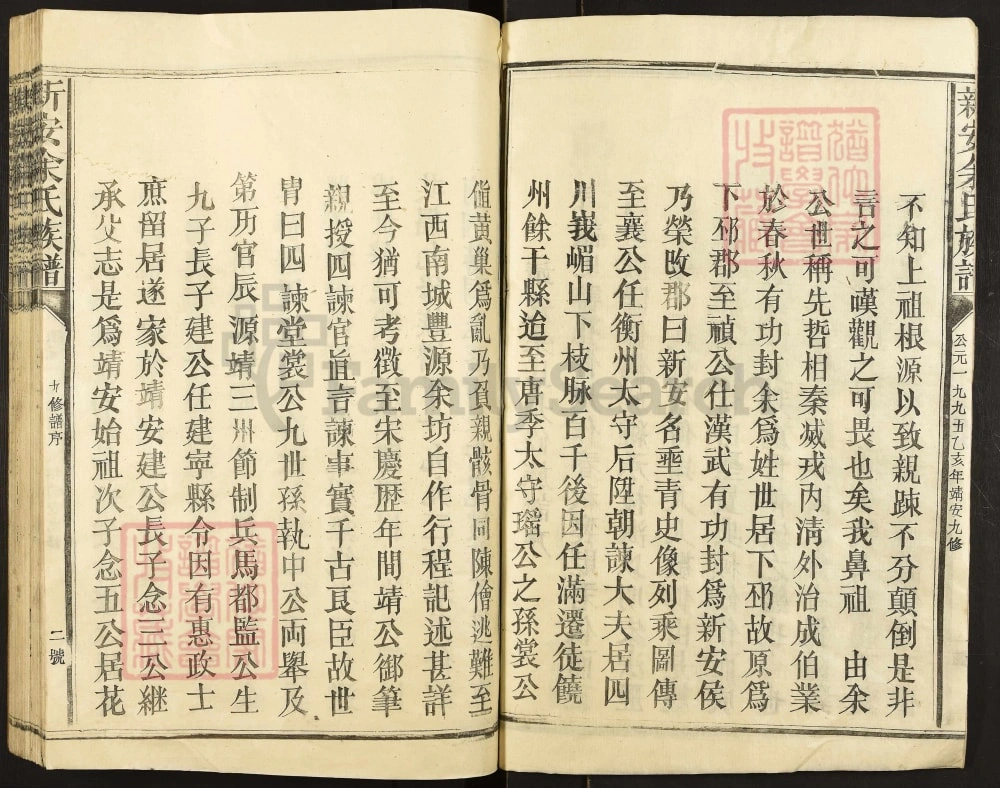 新安余氏族譜
公元一九九五乙亥年靖安九修
不知上祖根源以致親踈不分顛倒是非
言之可嘆觀之可畏也矣我鼻祖　由余
公世稱先哲相秦烕戎內淸外治成伯業
於春秋有功封余爲姓世居下邳故原爲
下邳郡至禎公仕漢武有功封爲新安侯
乃榮改郡曰新安名垂青史像列乘圖傳
至襄公任衡州太守后陞朝諫大夫居四
川峩嵋山下枝脉百千後因任滿遷徒饒
州餘干縣迨至唐季太守瑶公之孫裳公
値黄巢爲亂乃負親骸骨同陳僧逃難至
江西南城豐源余坊自作行程記述甚詳
至今猶可考徵至宋慶歴年間靖公御筆
親授四諫官直言諫事實千古良臣故世
胄曰四諫堂裳公九世孫執中公両舉及
第功官辰　源靖三州節制兵馬都監公生
九子長子建公任建寧縣令因有惠政士
庶留居遂家於靖安建公長子念三公継
承父志是爲靖安始祖次子念五公居花
新安余氏族譜
九修譜序
二號
FamilySearch